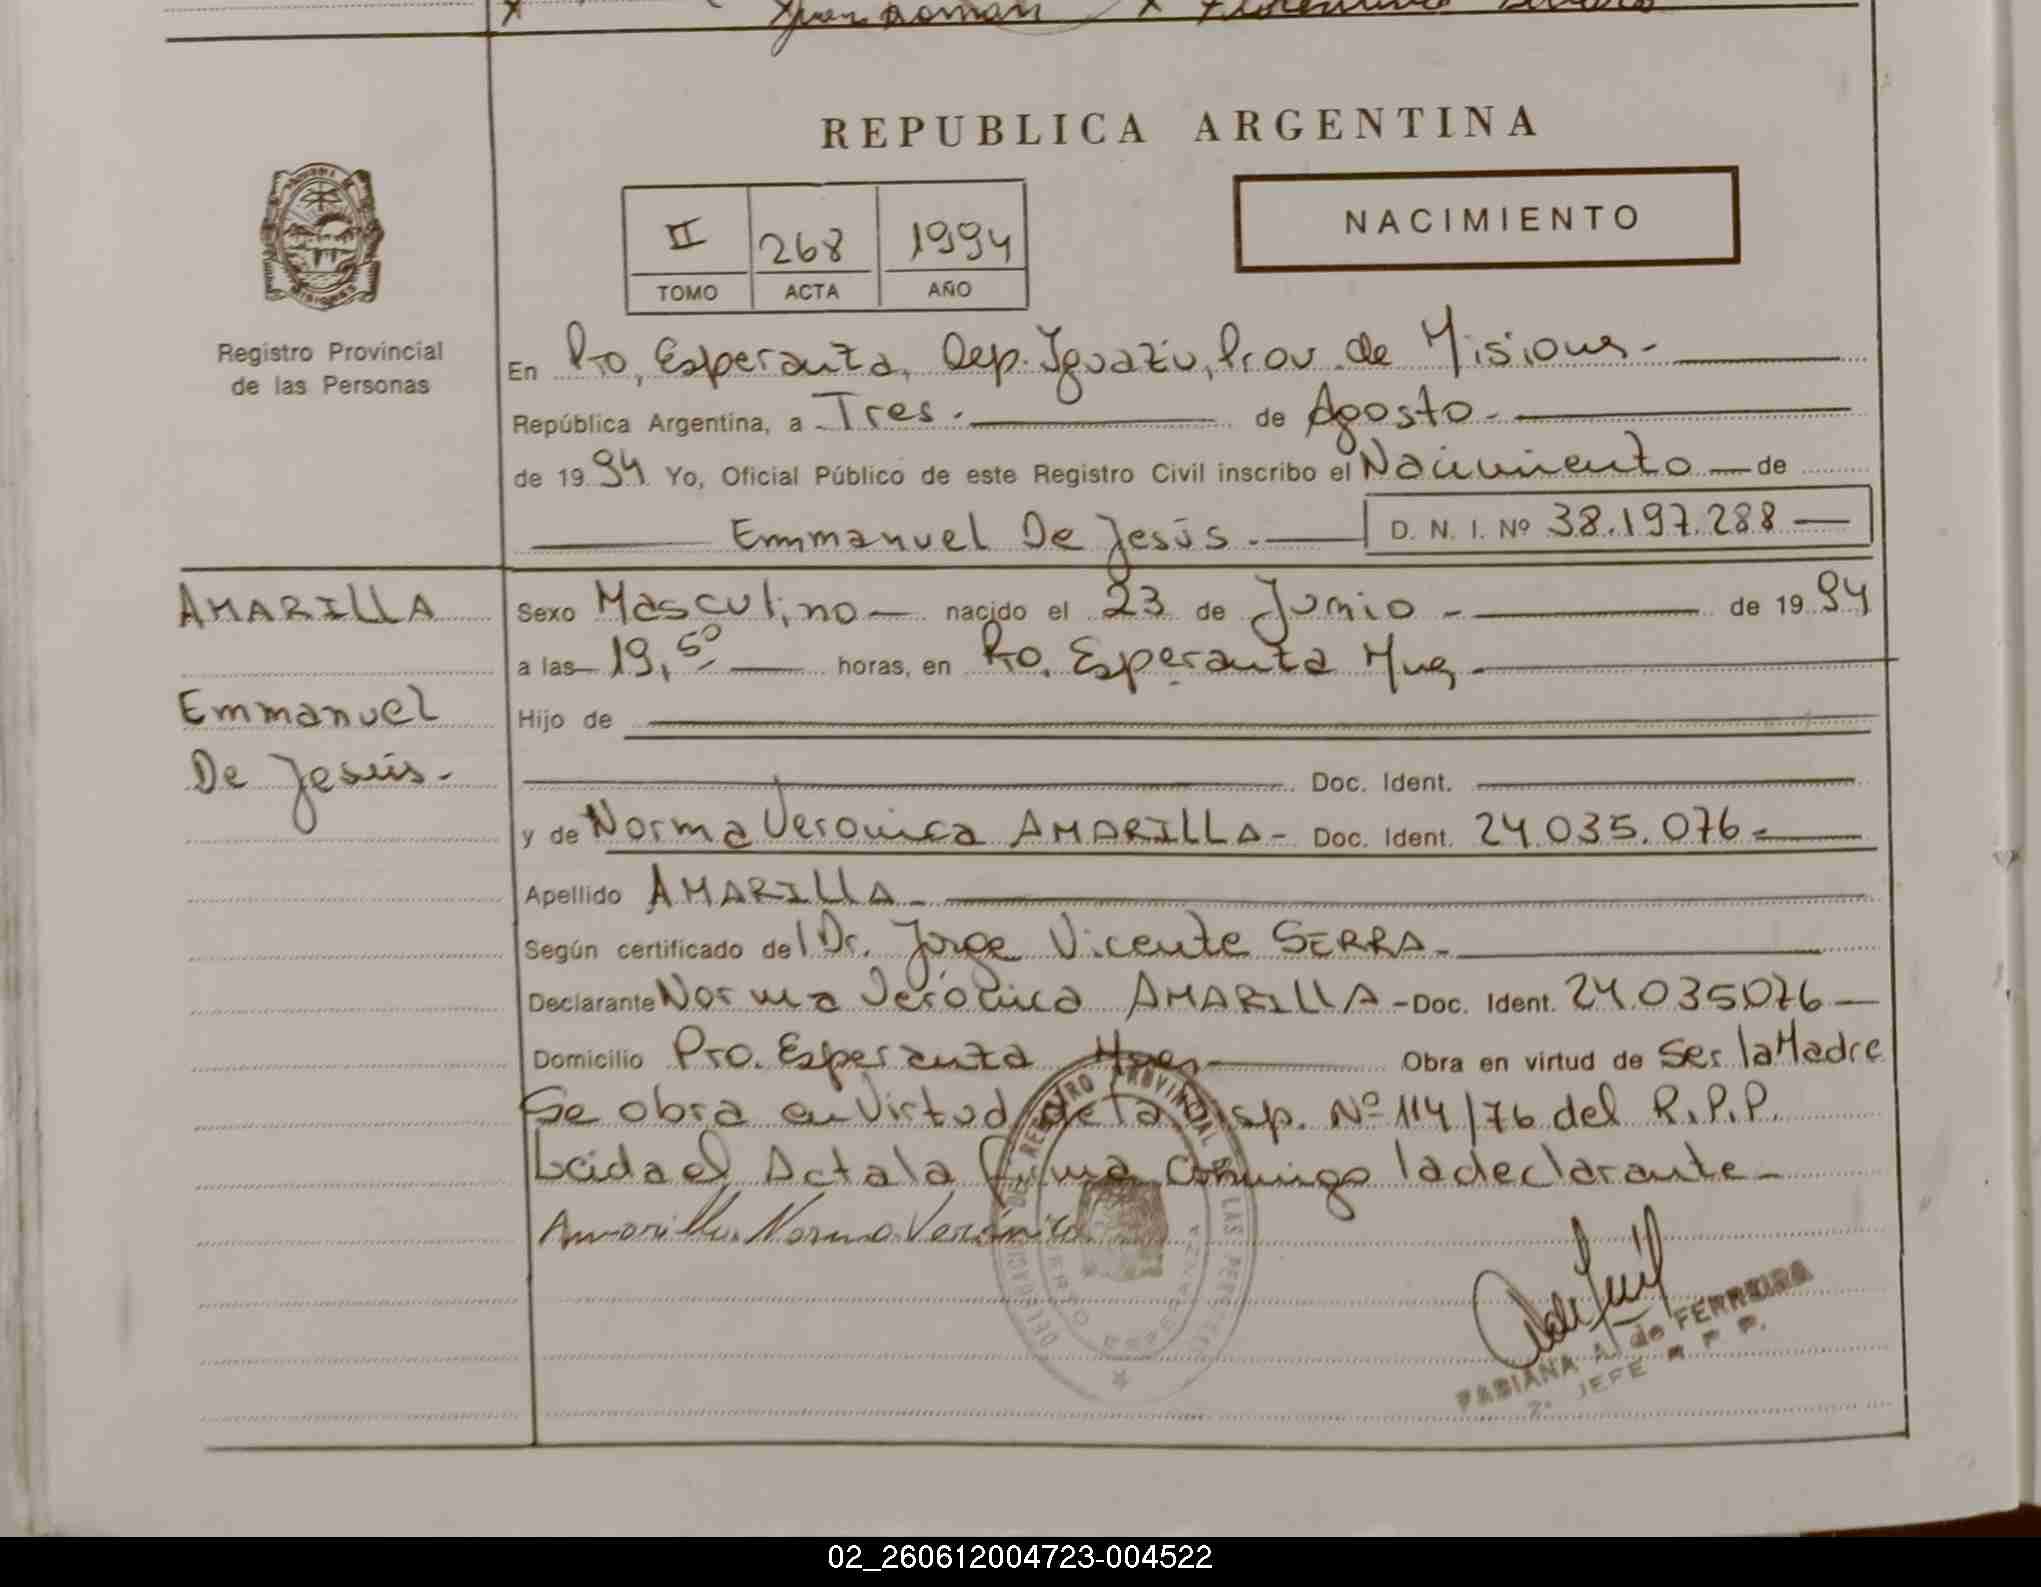 Juan Roman x Florentino
REPUBLICA ARGENTINA
II 268 1994
TOMO ACTA AÑO
NACIMIENTO
MISIONES
Registro Provincial
de las Personas
En Pto, Esperanza, Dep. Iguazu, Prov. de Misiones-
República Argentina, a Tres. de Agosto-
de 1994 Yo, Oficial Público de este Registro Civil inscribo el Nacimiento de
Emmanuel De Jesús. D. N. I. Nº 38.197.288
AMARILLA
Emmanuel
De Jesús.-
Sexo Masculino nacido el 23 de Junio - de 1994
a las 19,50 horas, en Pto. Esperanza Mnes
Hijo de
Doc. Ident.
y de Norma Veronica AMARILLA- Doc. Ident. 24.035.076-
Apellido AMARILLA-
Según certificado del Dr. Jorge Vicente SERRA-
Declarante Norma Verónica AMARILLA - Doc. Ident. 24.035076
Domicilio Pto. Esperanza Mnes Obra en virtud de Ser la Madre
Se obra en Virtud de la Disp. Nº 114/76 del R.P.P.
Leida el Acta la firma Conmigo la declarante-
Amarilla Norma Verónica
DELEGACION DEL REGISTRO PROVINCIAL DE LAS PERSONAS
PUERTO ESPERANZA
FABIANA A. de FERREIRA
2º JEFE R P P.
02_260612004723-004522